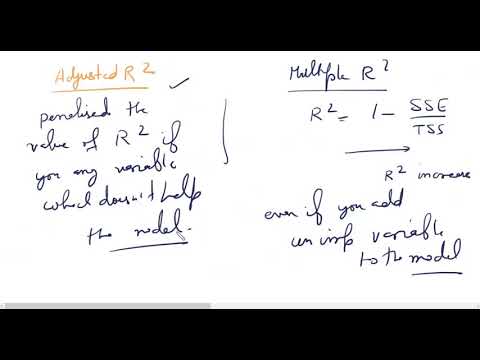 Adjusted R2
penalised the
value of R2 if
you any variable
which doesn't help
the model.
Multiple R2
R2 = 1 - SSE/TSS
R2 increase
even if you add
un imp variable
to the model